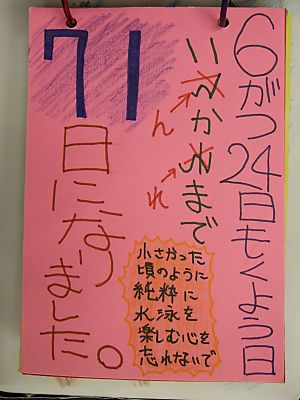 6がつ24日もくよう日
いんかれまで
71
日になりました。
小さかった
頃のように
純粋に
水泳を
楽しむ心を
忘れないで